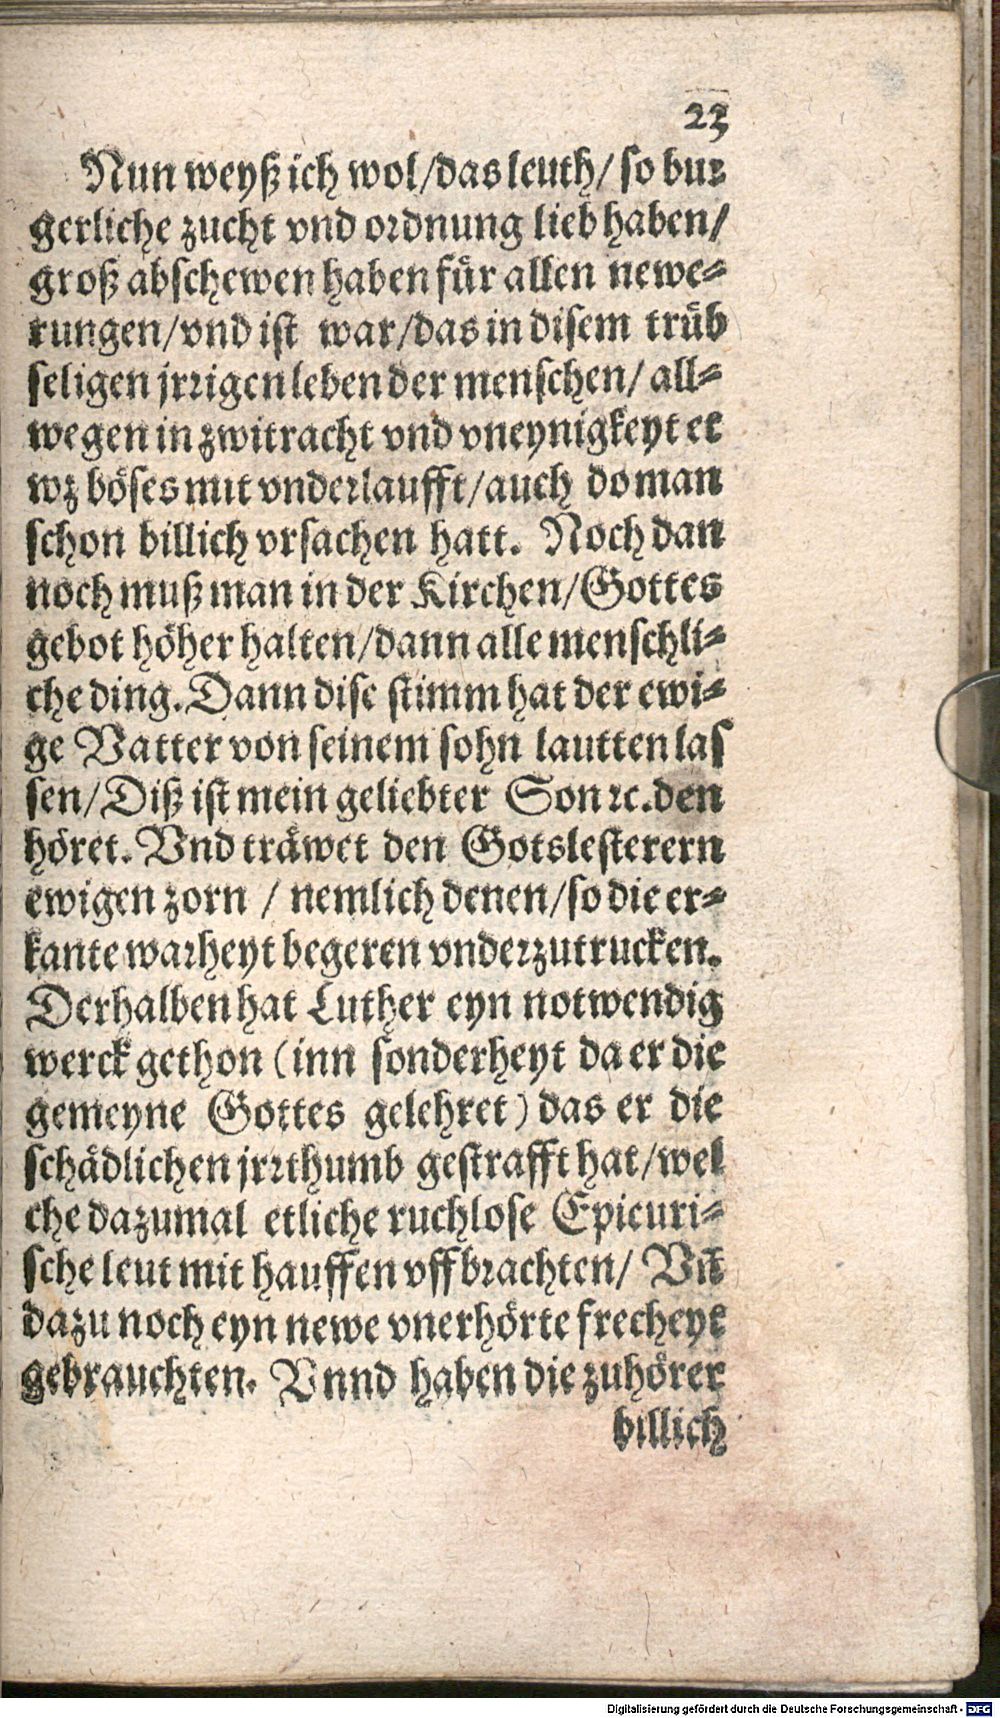 23
Nun weyß ich wol/das leuth/ so bur
gerliche zucht vnd ordnung lieb haben/
groß abschewen haben für allen newe-
rungen/vnd ist war/das in disem trüb
seligen jrrigen leben der menschen/ all-
wegen in zwitracht vnd vneynigkeyt et
wz böses mit vnderlaufft/auch do man
schon billich vrsachen hatt. Noch dan
noch muß man in der Kirchen/Gottes
gebot höher halten/dann alle menschli-
che ding. Dann dise stimm hat der ewi-
ge Vatter von seinem sohn lautten las
sen/Diß ist mein geliebter Son ꝛc. den
höret. Vnd träwet den Gotslesterern
ewigen zorn / nemlich denen/so die er-
kante warheyt begeren vnderzutrucken.
Derhalben hat Luther eyn notwendig
werck gethon (inn sonderheyt da er die
gemeyne Gottes gelehret) das er die
schädlichen jrrthumb gestrafft hat/wel
che dazumal etliche ruchlose Epicuri-
sche leut mit hauffen vffbrachten/ Vñ
dazu noch eyn newe vnerhörte frecheyt
gebrauchten. Vnnd haben die zuhörer
billich
Digitalisierung gefördert durch die Deutsche Forschungsgemeinschaft - DFG